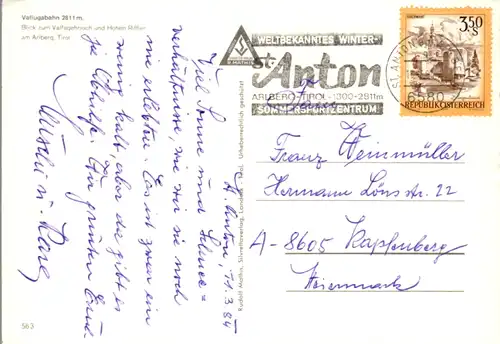 Vallugabahn 2811 m,
Blick zum Valfagehrjoch und Hohen Riffler
am Arlberg, Tirol
St. Anton, 11.3.84
Viel Sonne und Schnee=
verhältnisse, wie wir sie noch
nie erlebten. Es ist zwar ein
wenig kalt, aber da gibt es
ja Abhilfe. Es grüßen Euch
u.
563
Rudolf Mathis, Silvrettaverlag, Landeck, Tirol. Urheberrechtlich geschützt
R.MATHIS
WELTBEKANNTES WINTER-
St. Anton
ARLBERG-TIROL · 1300-2811m
SOMMERSPORTZENTRUM
ST. ANTON
6580
3,50
S
REPUBLIK ÖSTERREICH
Franz Weinmüller
Hermann Löns str. 22
A-8605 Kapfenberg
Steiermark